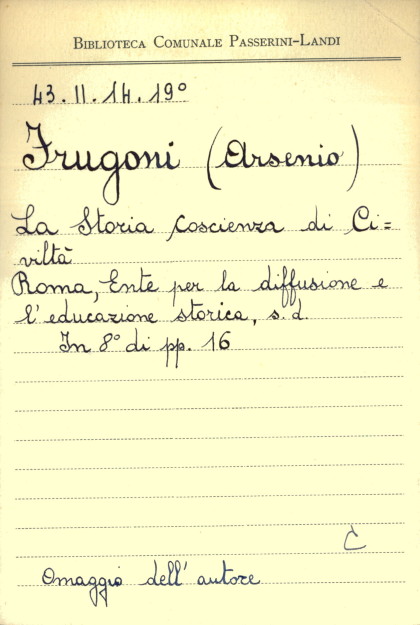 BIBLIOTECA COMUNALE PASSERINI-LANDI
43.II.14.19°
Frugoni (Arsenio)
La Storia coscienza di Ci=
viltà
Roma, Ente per la diffusione e
l'educazione storica, s. d.
In 8° di pp. 16
C
Omaggio dell'autore